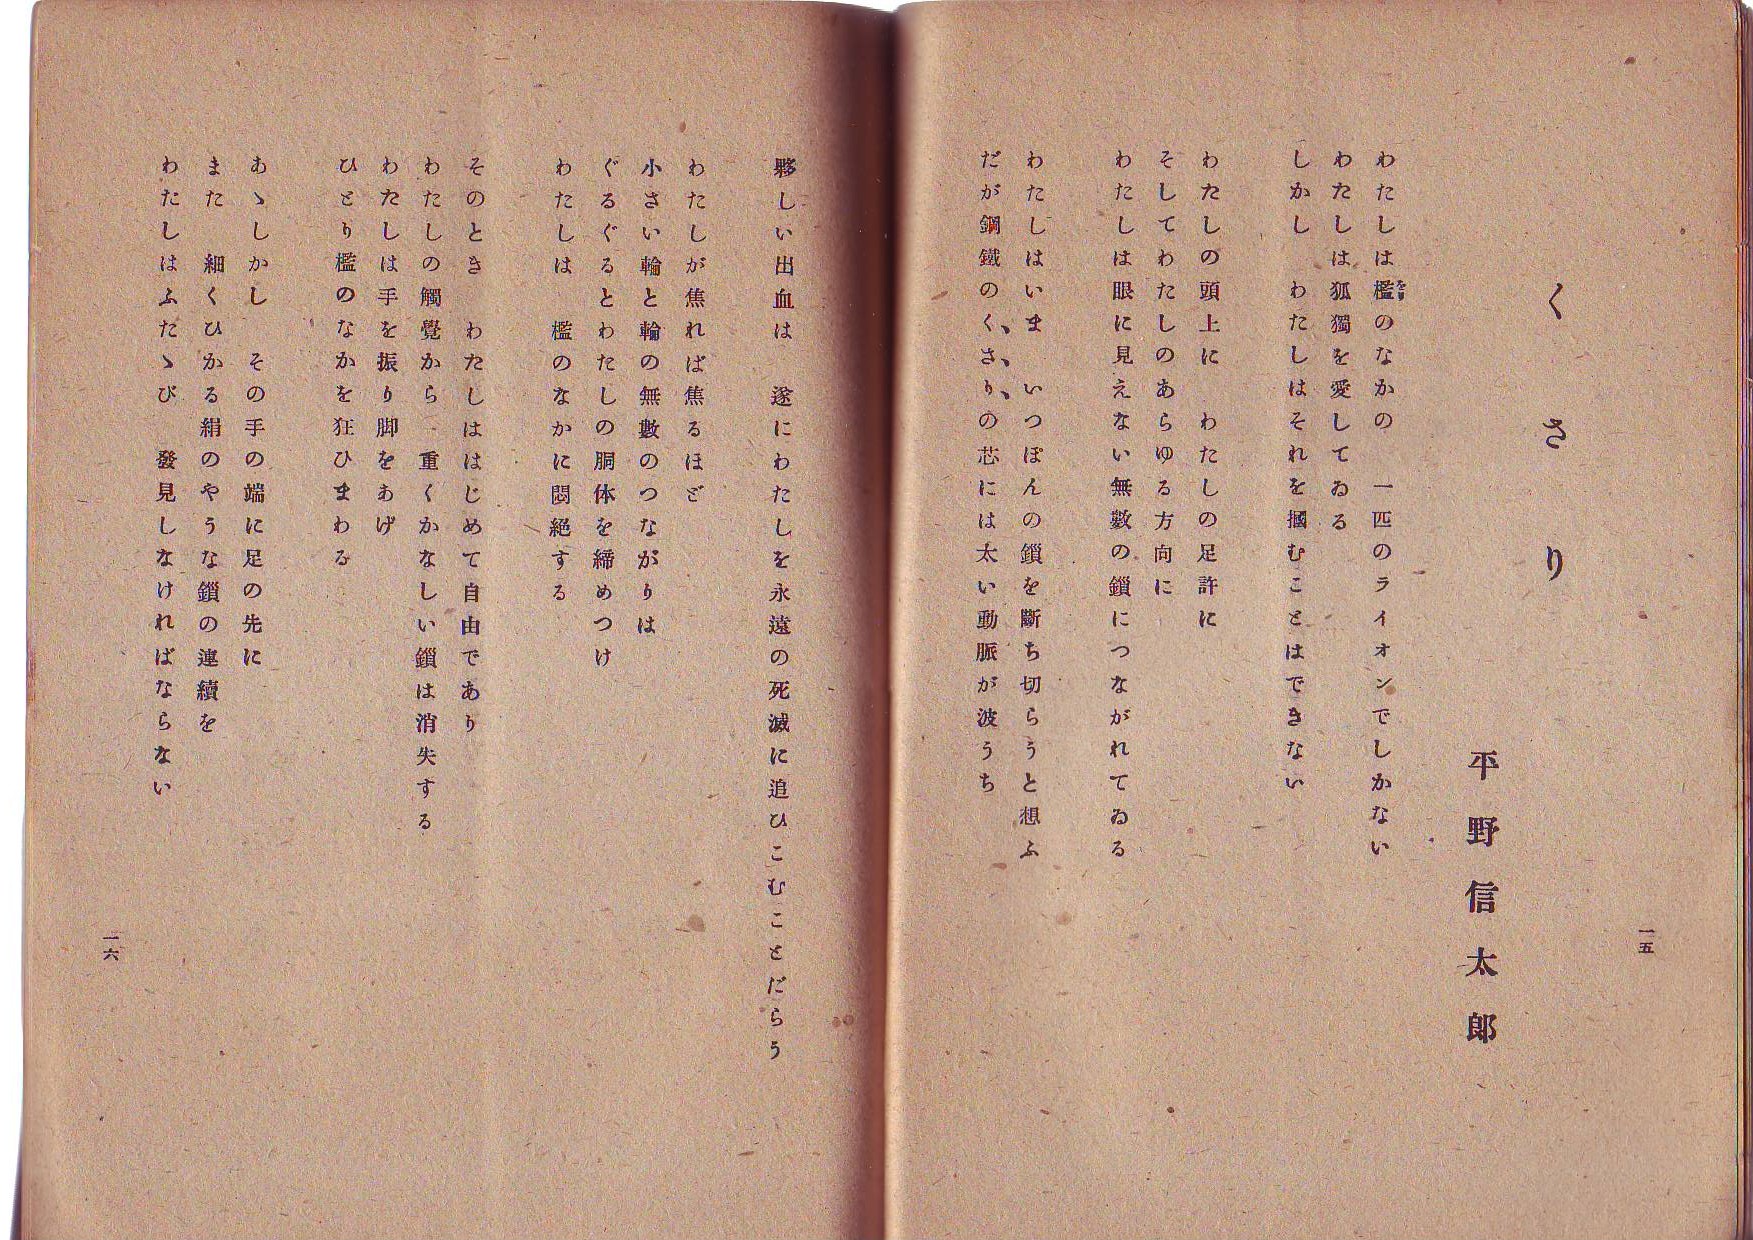 くさり
平野信太郎
わたしは檻のなかの　一匹のライオンでしかない
わたしは狐獨を愛してゐる
しかし　わたしはそれを摑むことはできない
わたしの頭上に　わたしの足許に
そしてわたしのあらゆる方向に
わたしは眼に見えない無數の鎖につながれてゐる
わたしはいま　いつぽんの鎖を斷ち切らうと想ふ
だが鋼鐵のくさりの芯には太い動脈が波うち
一五
夥しい出血は　遂にわたしを永遠の死滅に追ひこむことだらう
わたしが焦れば焦るほど
小さい輪と輪の無數のつながりは
ぐるぐるとわたしの胴体を締めつけ
わたしは　檻のなかに悶絶する
そのとき　わたしははじめて自由であり
わたしの觸覺から　重くかなしい鎖は消失する
わたしは手を振り脚をあげ
ひとり檻のなかを狂ひまわる
あゝしかし　その手の端に足の先に
また　細くひかる絹のやうな鎖の連續を
わたしはふたゝび　發見しなければならない
一六